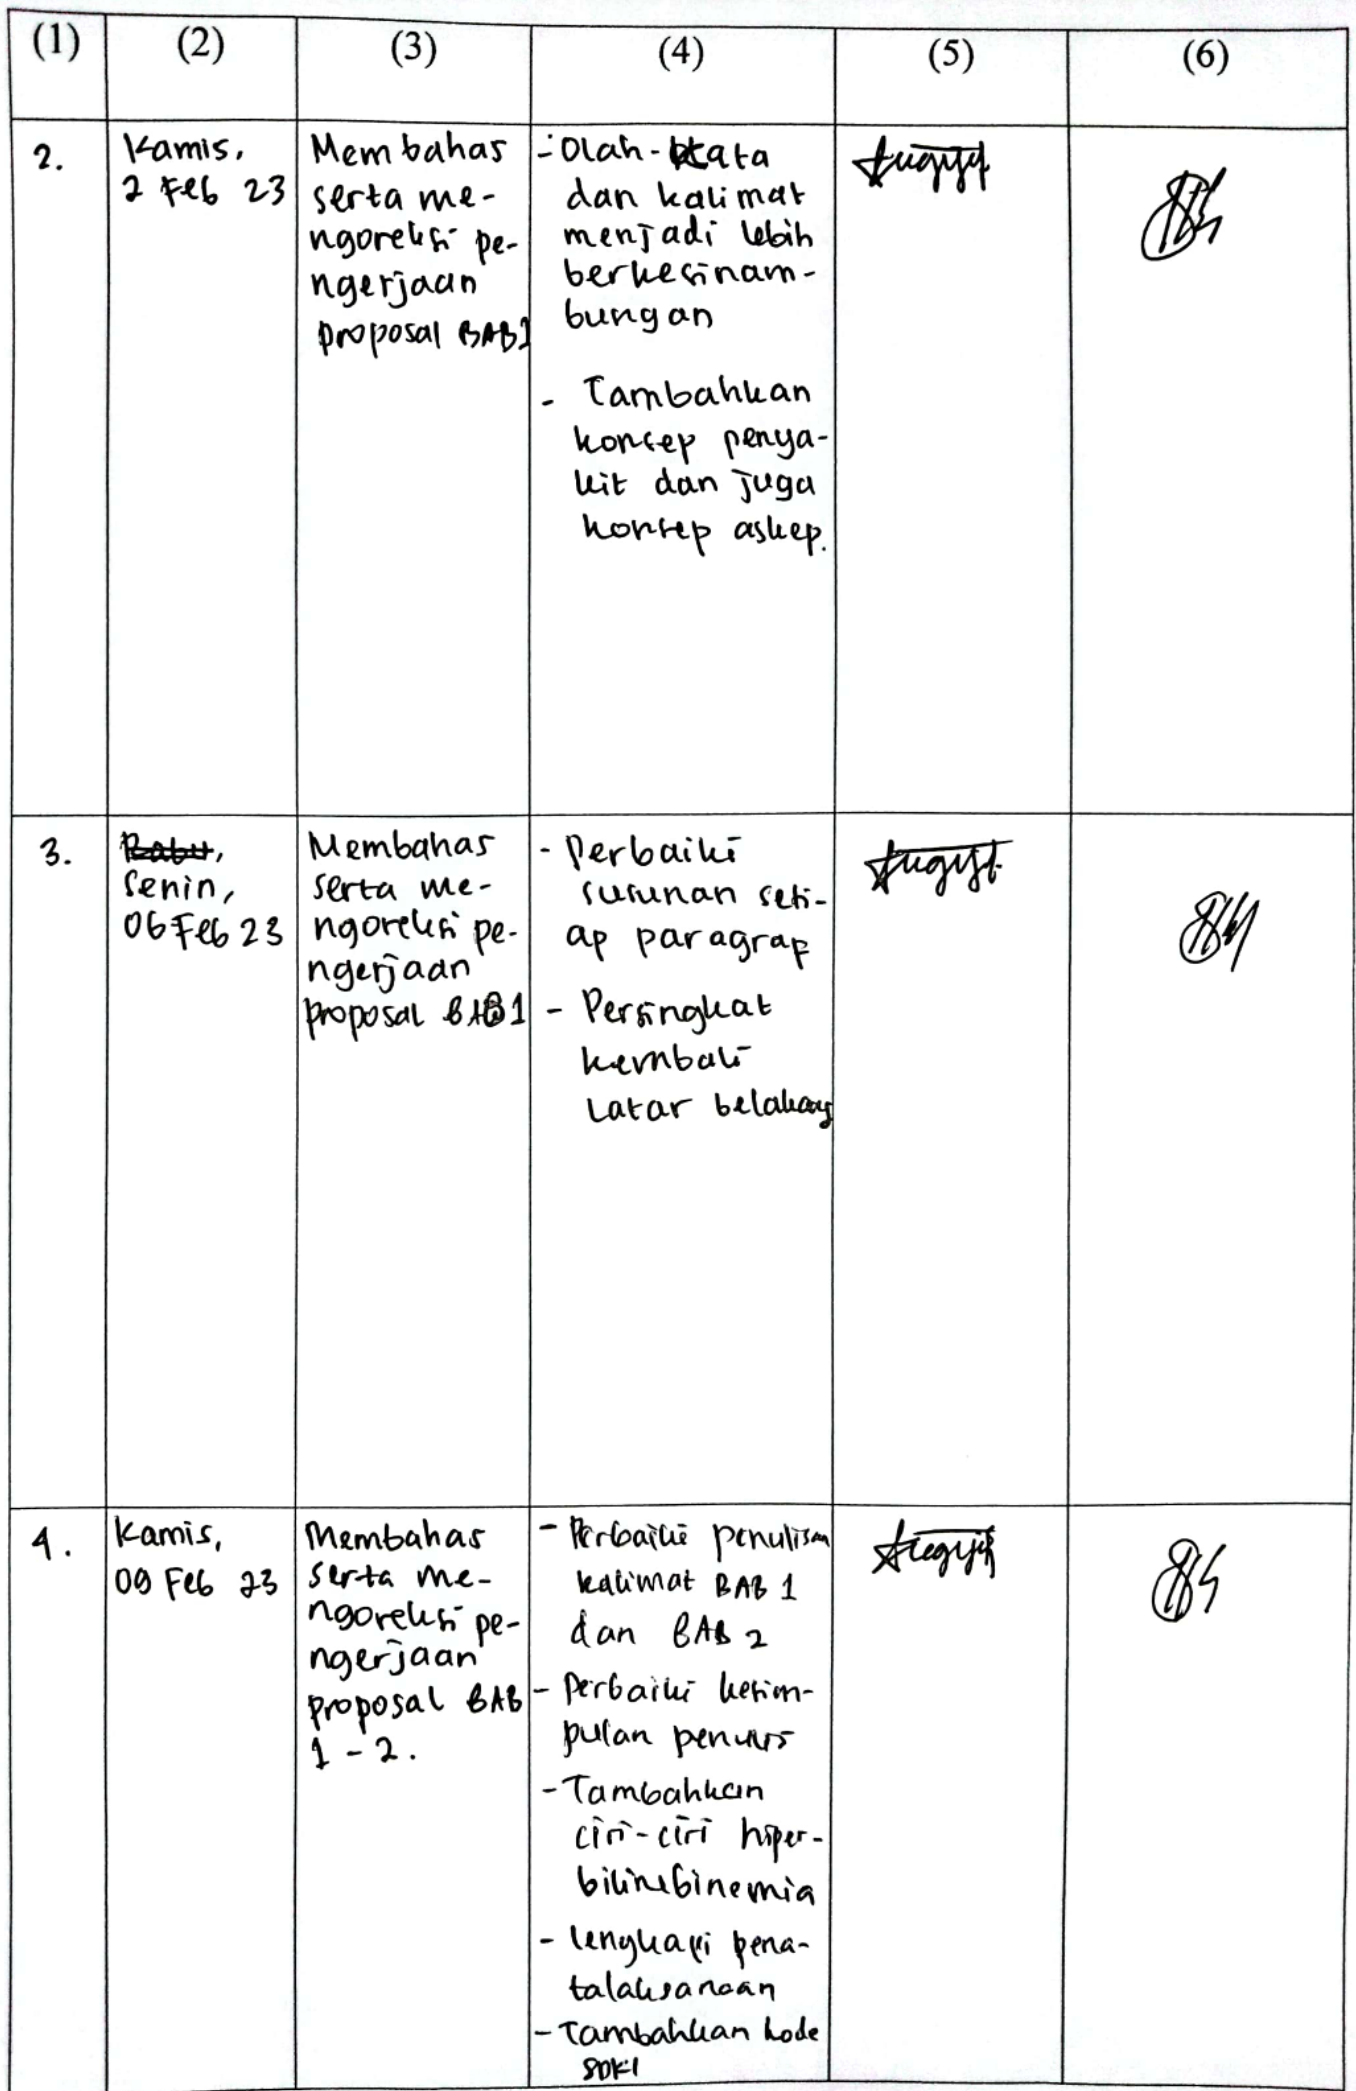 (1) (2) (3) (4) (5) (6)
2.
Kamis,
2 Feb 23
Membahas
serta me-
ngoreksi pe-
ngerjaan
proposal BAB1
- Olah-kata
dan kalimat
menjadi lebih
berkesinam-
bungan
- Tambahkan
konsep penya-
kit dan juga
konsep askep.
3.
Rabu,
Senin,
06 Feb 23
Membahas
serta me-
ngoreksi pe-
ngerjaan
proposal BAB1
- Perbaiki
susunan seti-
ap paragrap
- Persingkat
kembali
Latar belakang
4.
Kamis,
09 Feb 23
Membahas
serta me-
ngoreksi pe-
ngerjaan
proposal BAB
1 - 2.
- Perbaiki penulisan
kalimat BAB 1
dan BAB 2
- Perbaiki kesim-
pulan penulis
- Tambahkan
ciri-ciri hiper-
bilirubinemia
- lengkapi pena-
talaksanaan
- Tambahkan kode
SDKI